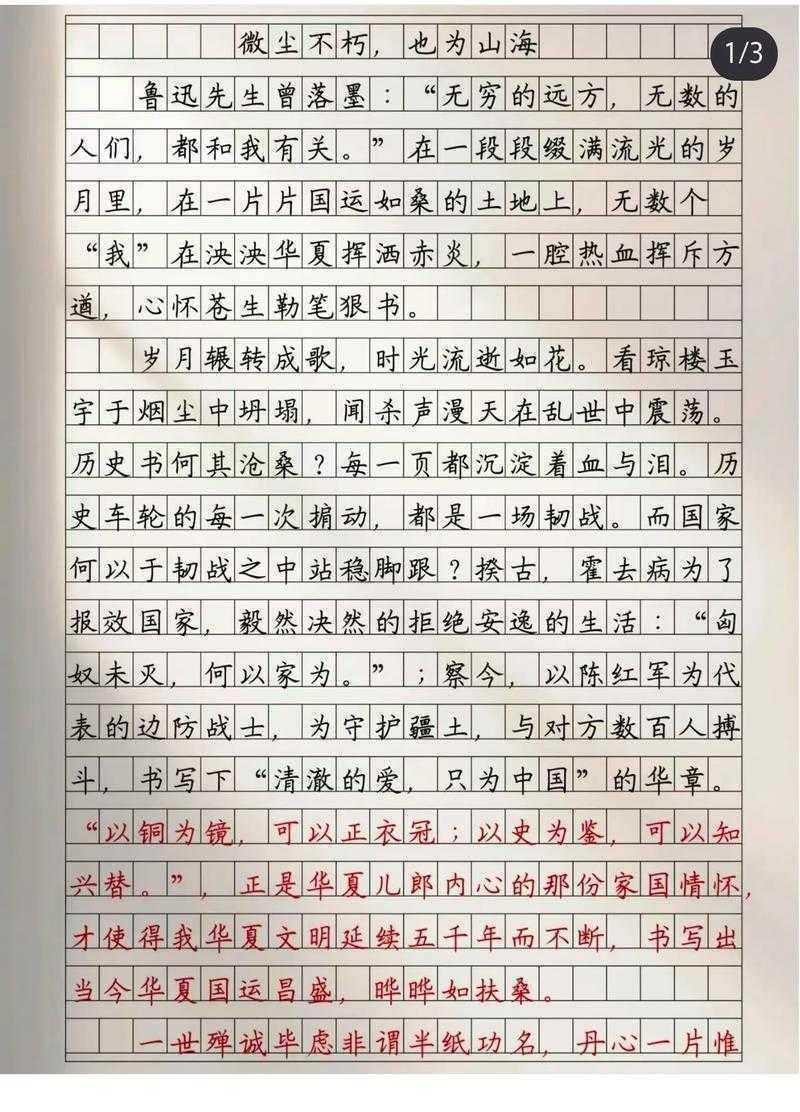 微尘不朽，也为山海
1/3
鲁迅先生曾落墨：“无穷的远方，无数的
人们，都和我有关。”在一段段缀满流光的岁
月里，在一片片国运如桑的土地上，无数个
“我”在泱泱华夏挥洒赤炎，一腔热血挥斥方
遒，心怀苍生勒笔狠书。
岁月辗转成歌，时光流逝如花。看琼楼玉
宇于烟尘中坍塌，闻杀声漫天在乱世中震荡。
历史书何其沧桑？每一页都沉淀着血与泪。历
史车轮的每一次掮动，都是一场韧战。而国家
何以于韧战之中站稳脚跟？揆古，霍去病为了
报效国家，毅然决然的拒绝安逸的生活：“匈
奴未灭，何以家为。”；察今，以陈红军为代
表的边防战士，为守护疆土，与对方数百人搏
斗，书写下“清澈的爱，只为中国”的华章。
“以铜为镜，可以正衣冠；以史为鉴，可以知
兴替。”，正是华夏儿郎内心的那份家国情怀，
才使得我华夏文明延续五千年而不断，书写出
当今华夏国运昌盛，晔晔如扶桑。
一世殚诚毕虑非谓半纸功名，丹心一片惟